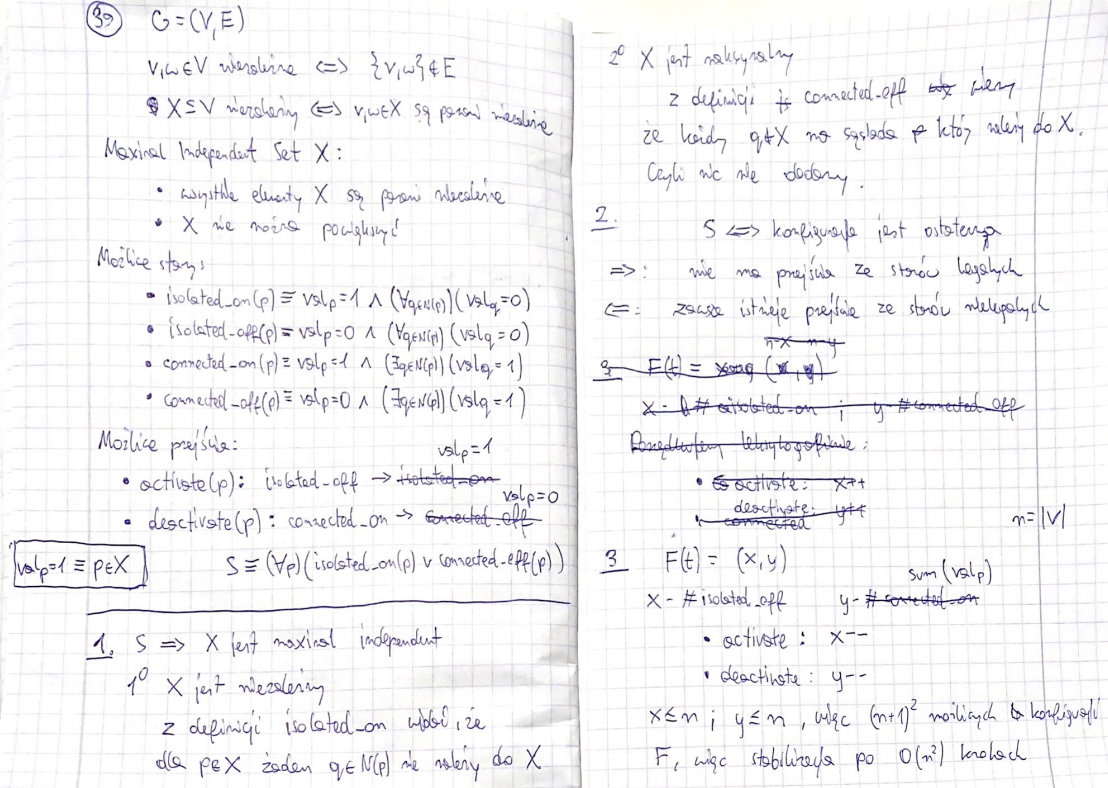 39 G=(V,E)
v,w∈V niezależne <=> {v,w}∉E
X⊆V niezależny <=> v,w∈X są parami niezależne
Maximal Independent Set X:
• wszystkie elementy X są parami niezależne
• X nie można powiększyć
Możliwe stany:
• isolated_on(p) ≡ val_p=1 ∧ (∀q∈N(p))(val_q=0)
• isolated_off(p) ≡ val_p=0 ∧ (∀q∈N(p))(val_q=0)
• connected_on(p) ≡ val_p=1 ∧ (∃q∈N(p))(val_q=1)
• connected_off(p) ≡ val_p=0 ∧ (∃q∈N(p))(val_q=1)
Możliwe przejścia:
val_p=1
• activate(p): isolated_off → isolated_on
val_p=0
• deactivate(p): connected_on → connected_off
val_p=1 ≡ p∈X
S ≡ (∀p)(isolated_on(p) ∨ connected_off(p))
1. S => X jest maximal independent
1° X jest niezależny
z definicji isolated_on widać, że
dla p∈X żaden q∈N(p) nie należy do X
2° X jest maksymalny
z definicji connected_off wiemy
że każdy q∉X ma sąsiada który należy do X.
Czyli nic nie dodamy.
2. S <=> konfiguracja jest ostateczna
=>: nie ma przejścia ze stanów legalnych
<=: zawsze istnieje przejście ze stanów nielegalnych
n-x n-y
3. F(t) = (x, y)
x - # isolated_on ; y - #connected_off
Porządkujemy leksykograficznie:
• activate: x++
deactivate: y++
• connected
n=|V|
3 F(t) = (x,y)
sum(val_p)
x - #isolated_off y - # connected_on
• activate: x--
• deactivate: y--
x≤n ; y≤n, więc (n+1)² możliwych konfiguracji
F, więc stabilizacja po O(n²) krokach